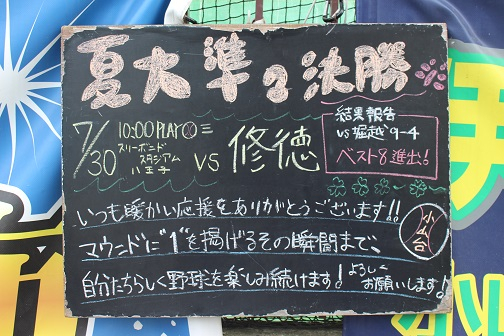 夏大準々決勝
7/30
10:00 PLAY
スリーボンド
スタジアム
八王子
VS
修徳
結果報告
vs 堀越 9-4
ベスト8進出!
いつも暖かい応援をありがとうございます!!
マウンドに"1"を掲げるその瞬間まで、
自分たちらしく野球を楽しみ続けます!
よろしく
お願いします!
小山台